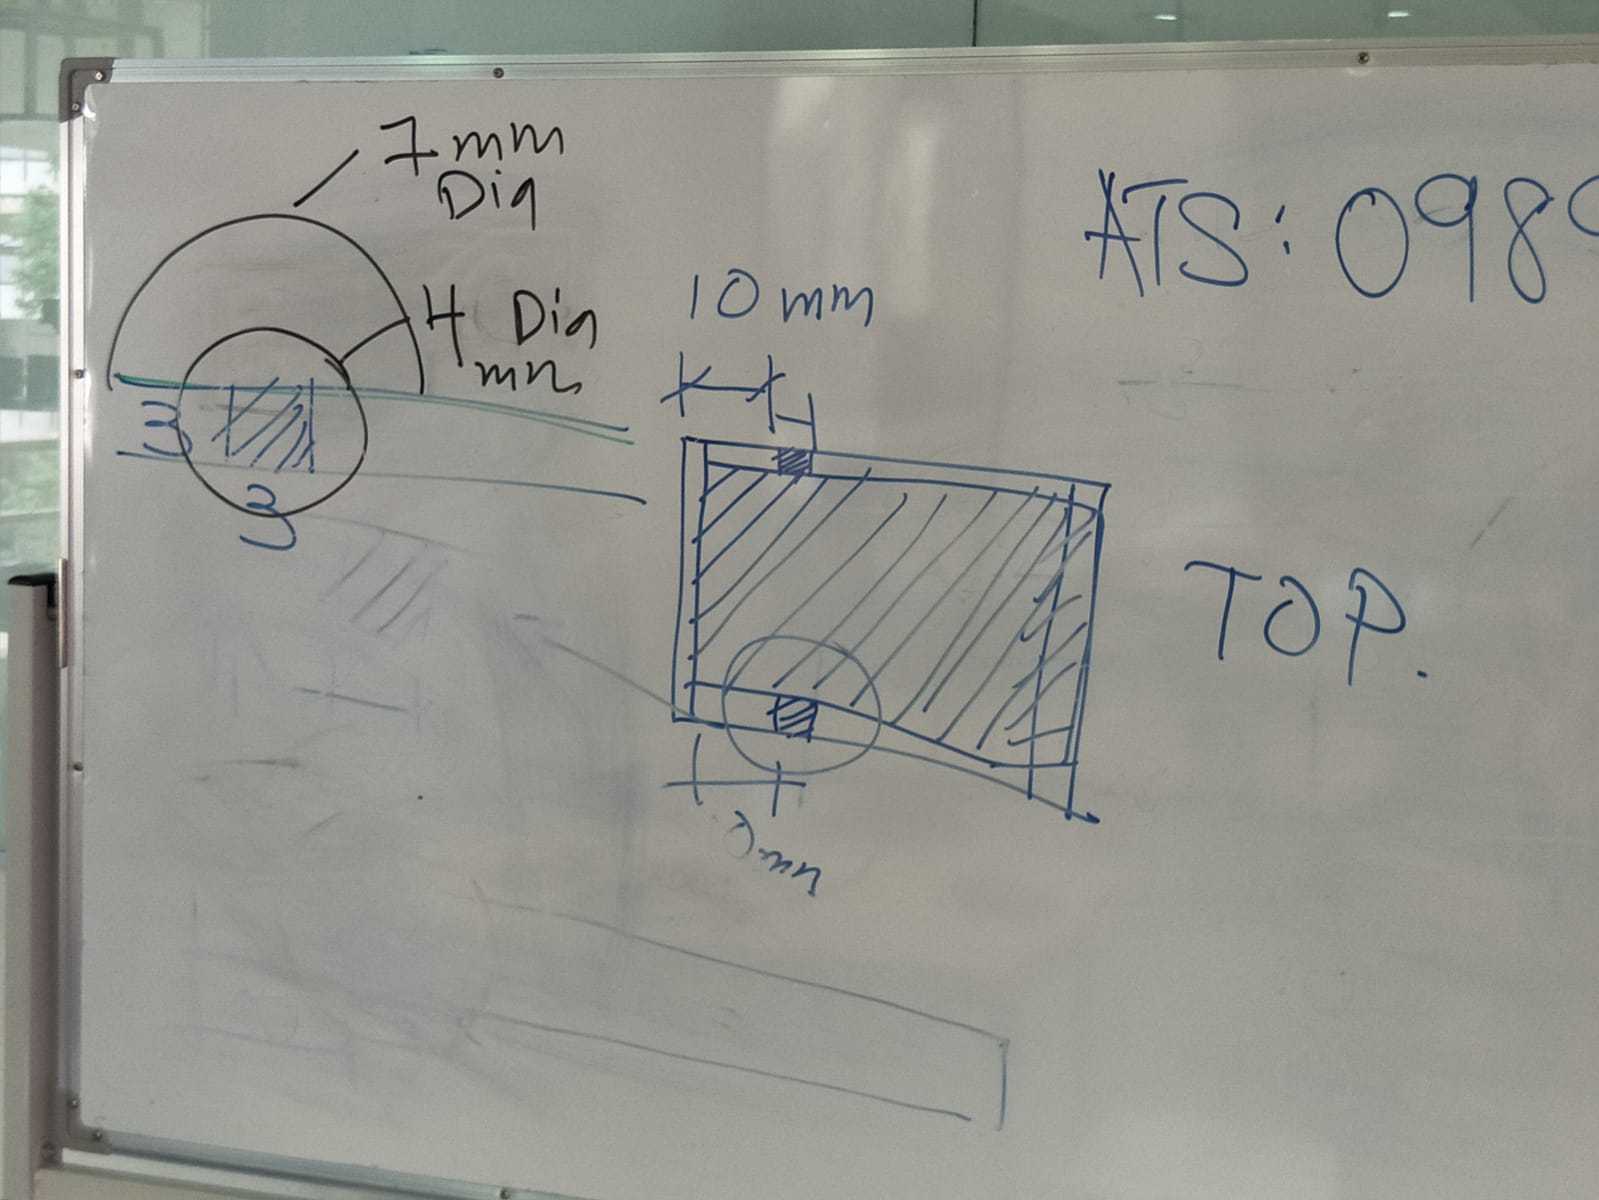 7mm
Dia
4 Dia
mm
3
3
10mm
ATS: 098
TOP.